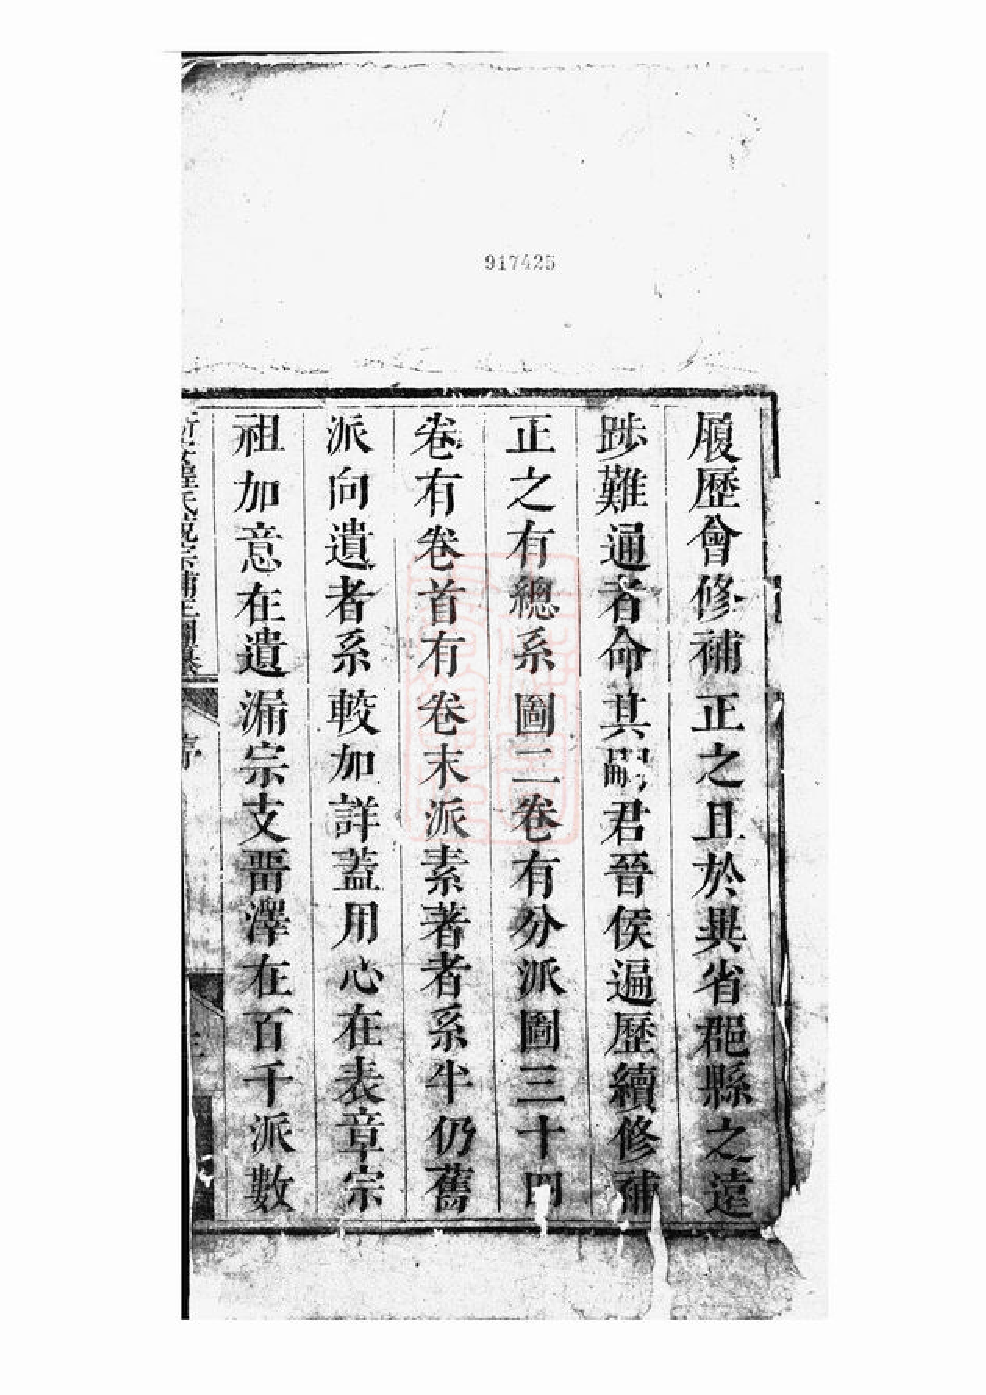 917425
履歷會修補正之且於異省郡縣之遠
陟難通者命其嗣君晉侯遍歷續修補
正之有總系圖二卷有分派圖三十四
卷有卷首有卷末派素著者系半仍舊
派向遺者系較加詳蓋用心在表章宗
祖加意在遺漏宗支晋澤在百千派數